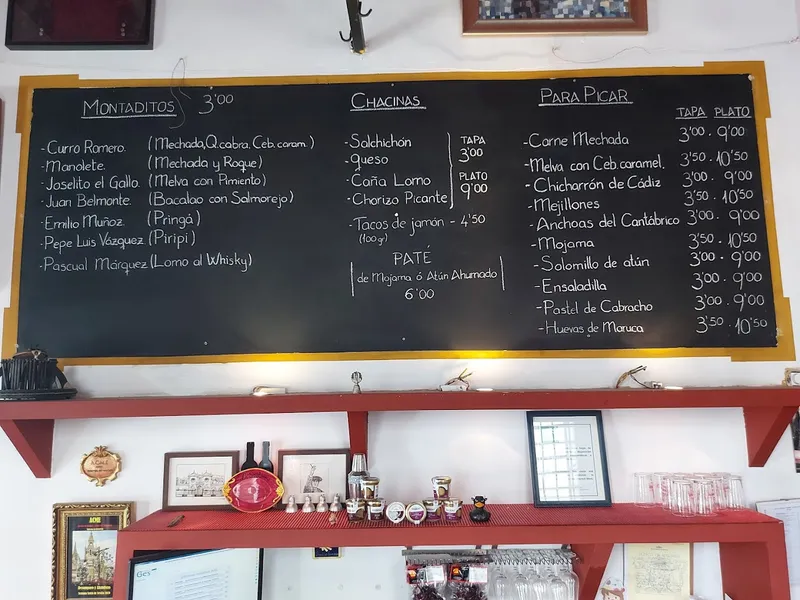 MONTADITOS 3'00
- Curro Romero. (Mechada, Q.cabra, Ceb.caram.)
- Manolete. (Mechada y Roque)
- Joselito el Gallo. (Melva con Pimiento)
- Juan Belmonte. (Bacalao con Salmorejo)
- Emilio Muñoz. (Pringá)
- Pepe Luis Vázquez (Piripi)
- Pascual Márquez (Lomo al Whisky)
CHACINAS
- Salchichón
- queso
- Caña Lomo
- Chorizo Picante
TAPA
3'00
PLATO
9'00
- Tacos de jamón - 4'50
(100gr)
PATÉ
de Mojama ó Atún Ahumado
6'00
PARA PICAR
TAPA PLATO
- Carne Mechada 3'00 . 9'00
- Melva con Ceb.caramel. 3'50 . 10'50
- Chicharrón de Cádiz 3'00 . 9'00
- Mejillones 3'50 . 10'50
- Anchoas del Cantábrico 3'00 . 9'00
- Mojama 3'50 . 10'50
- Solomillo de atún 3'00 . 9'00
- Ensaladilla 3'00 . 9'00
- Pastel de Cabracho 3'00 . 9'00
- Huevas de Maruca 3'50 . 10'50